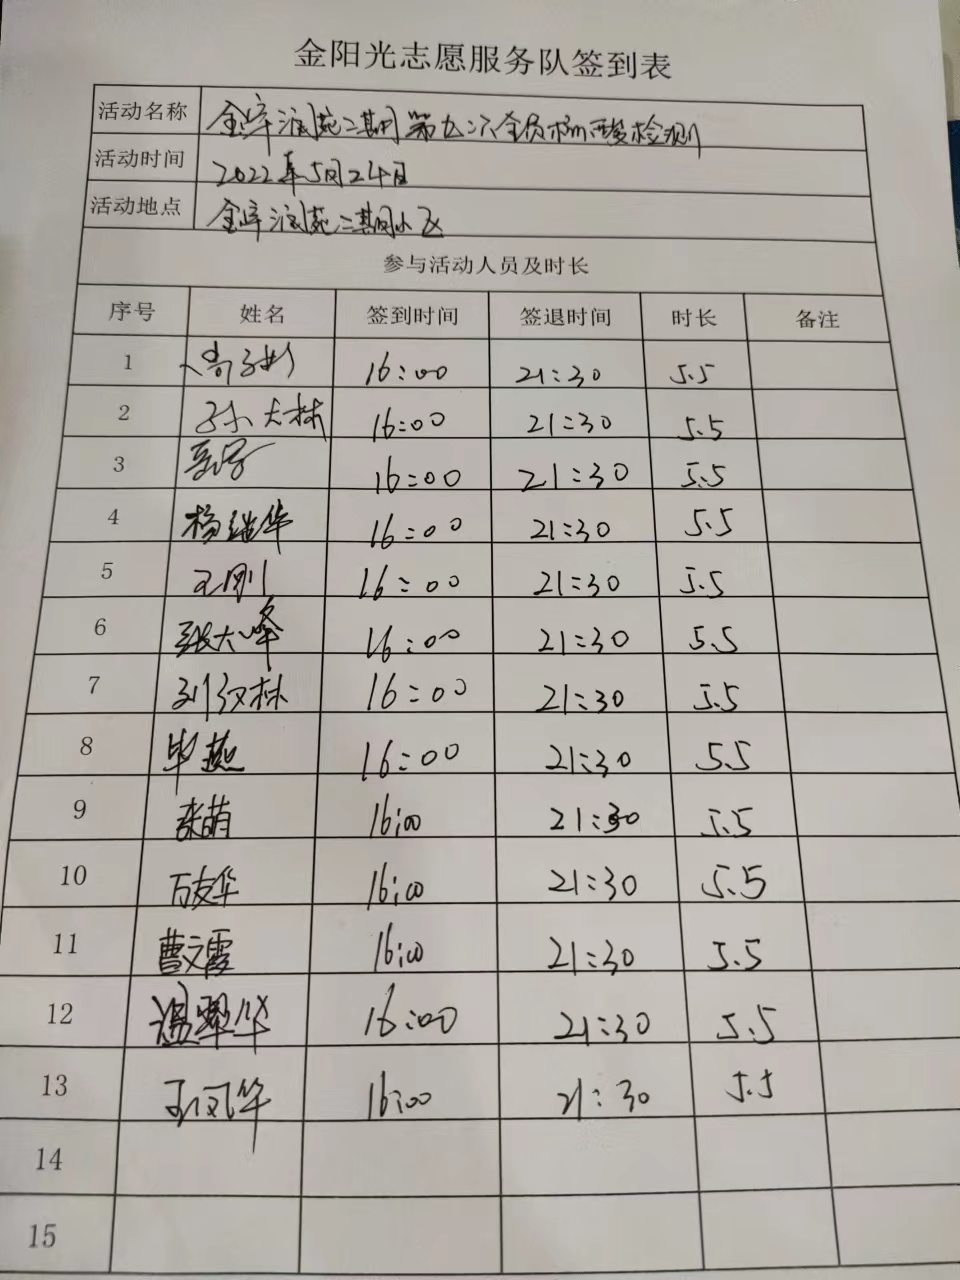 金阳光志愿服务队签到表
活动名称 金岸润苑二期第九次全员核酸检测
活动时间 2022年5月24日
活动地点 金岸润苑二期小区
参与活动人员及时长
序号 姓名 签到时间 签退时间 时长 备注
1 16:00 21:30 5.5
2 孙大林 16:00 21:30 5.5
3 16:00 21:30 5.5
4 杨继华 16:00 21:30 5.5
5 王刚 16:00 21:30 5.5
6 张大峰 16:00 21:30 5.5
7 刘汉林 16:00 21:30 5.5
8 毕燕 16:00 21:30 5.5
9 张萌 16:00 21:30 5.5
10 万友华 16:00 21:30 5.5
11 曹文霞 16:00 21:30 5.5
12 温翠华 16:00 21:30 5.5
13 王凤华 16:00 21:30 5.5
14
15